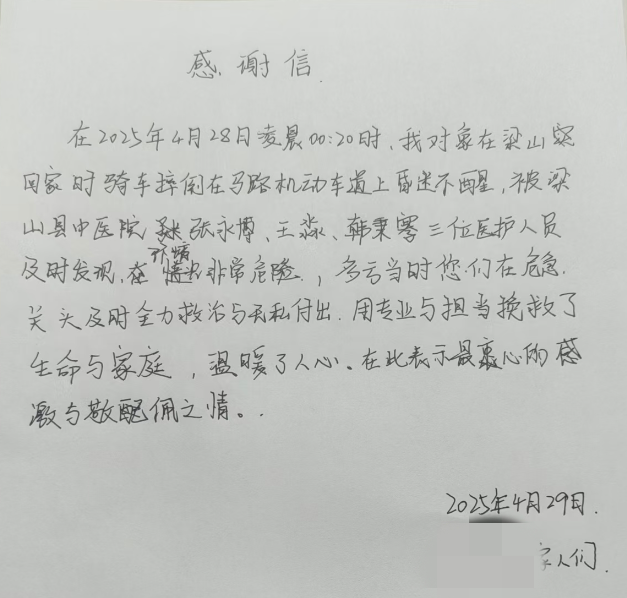 感谢信
在2025年4月28日凌晨00:20时,我对象在梁山
回家时骑车摔倒在马路机动车道上昏迷不醒,被梁
山县中医院 张永博、王淼、韩秉零三位医护人员
及时发现,在 非常危险,多亏当时您们在危急
关头及时全力救治与无私付出.用专业与担当挽救了
生命与家庭,温暖了人心。在此表示最衷心的感
激与敬佩之情。
2025年4月29日.
家人们.